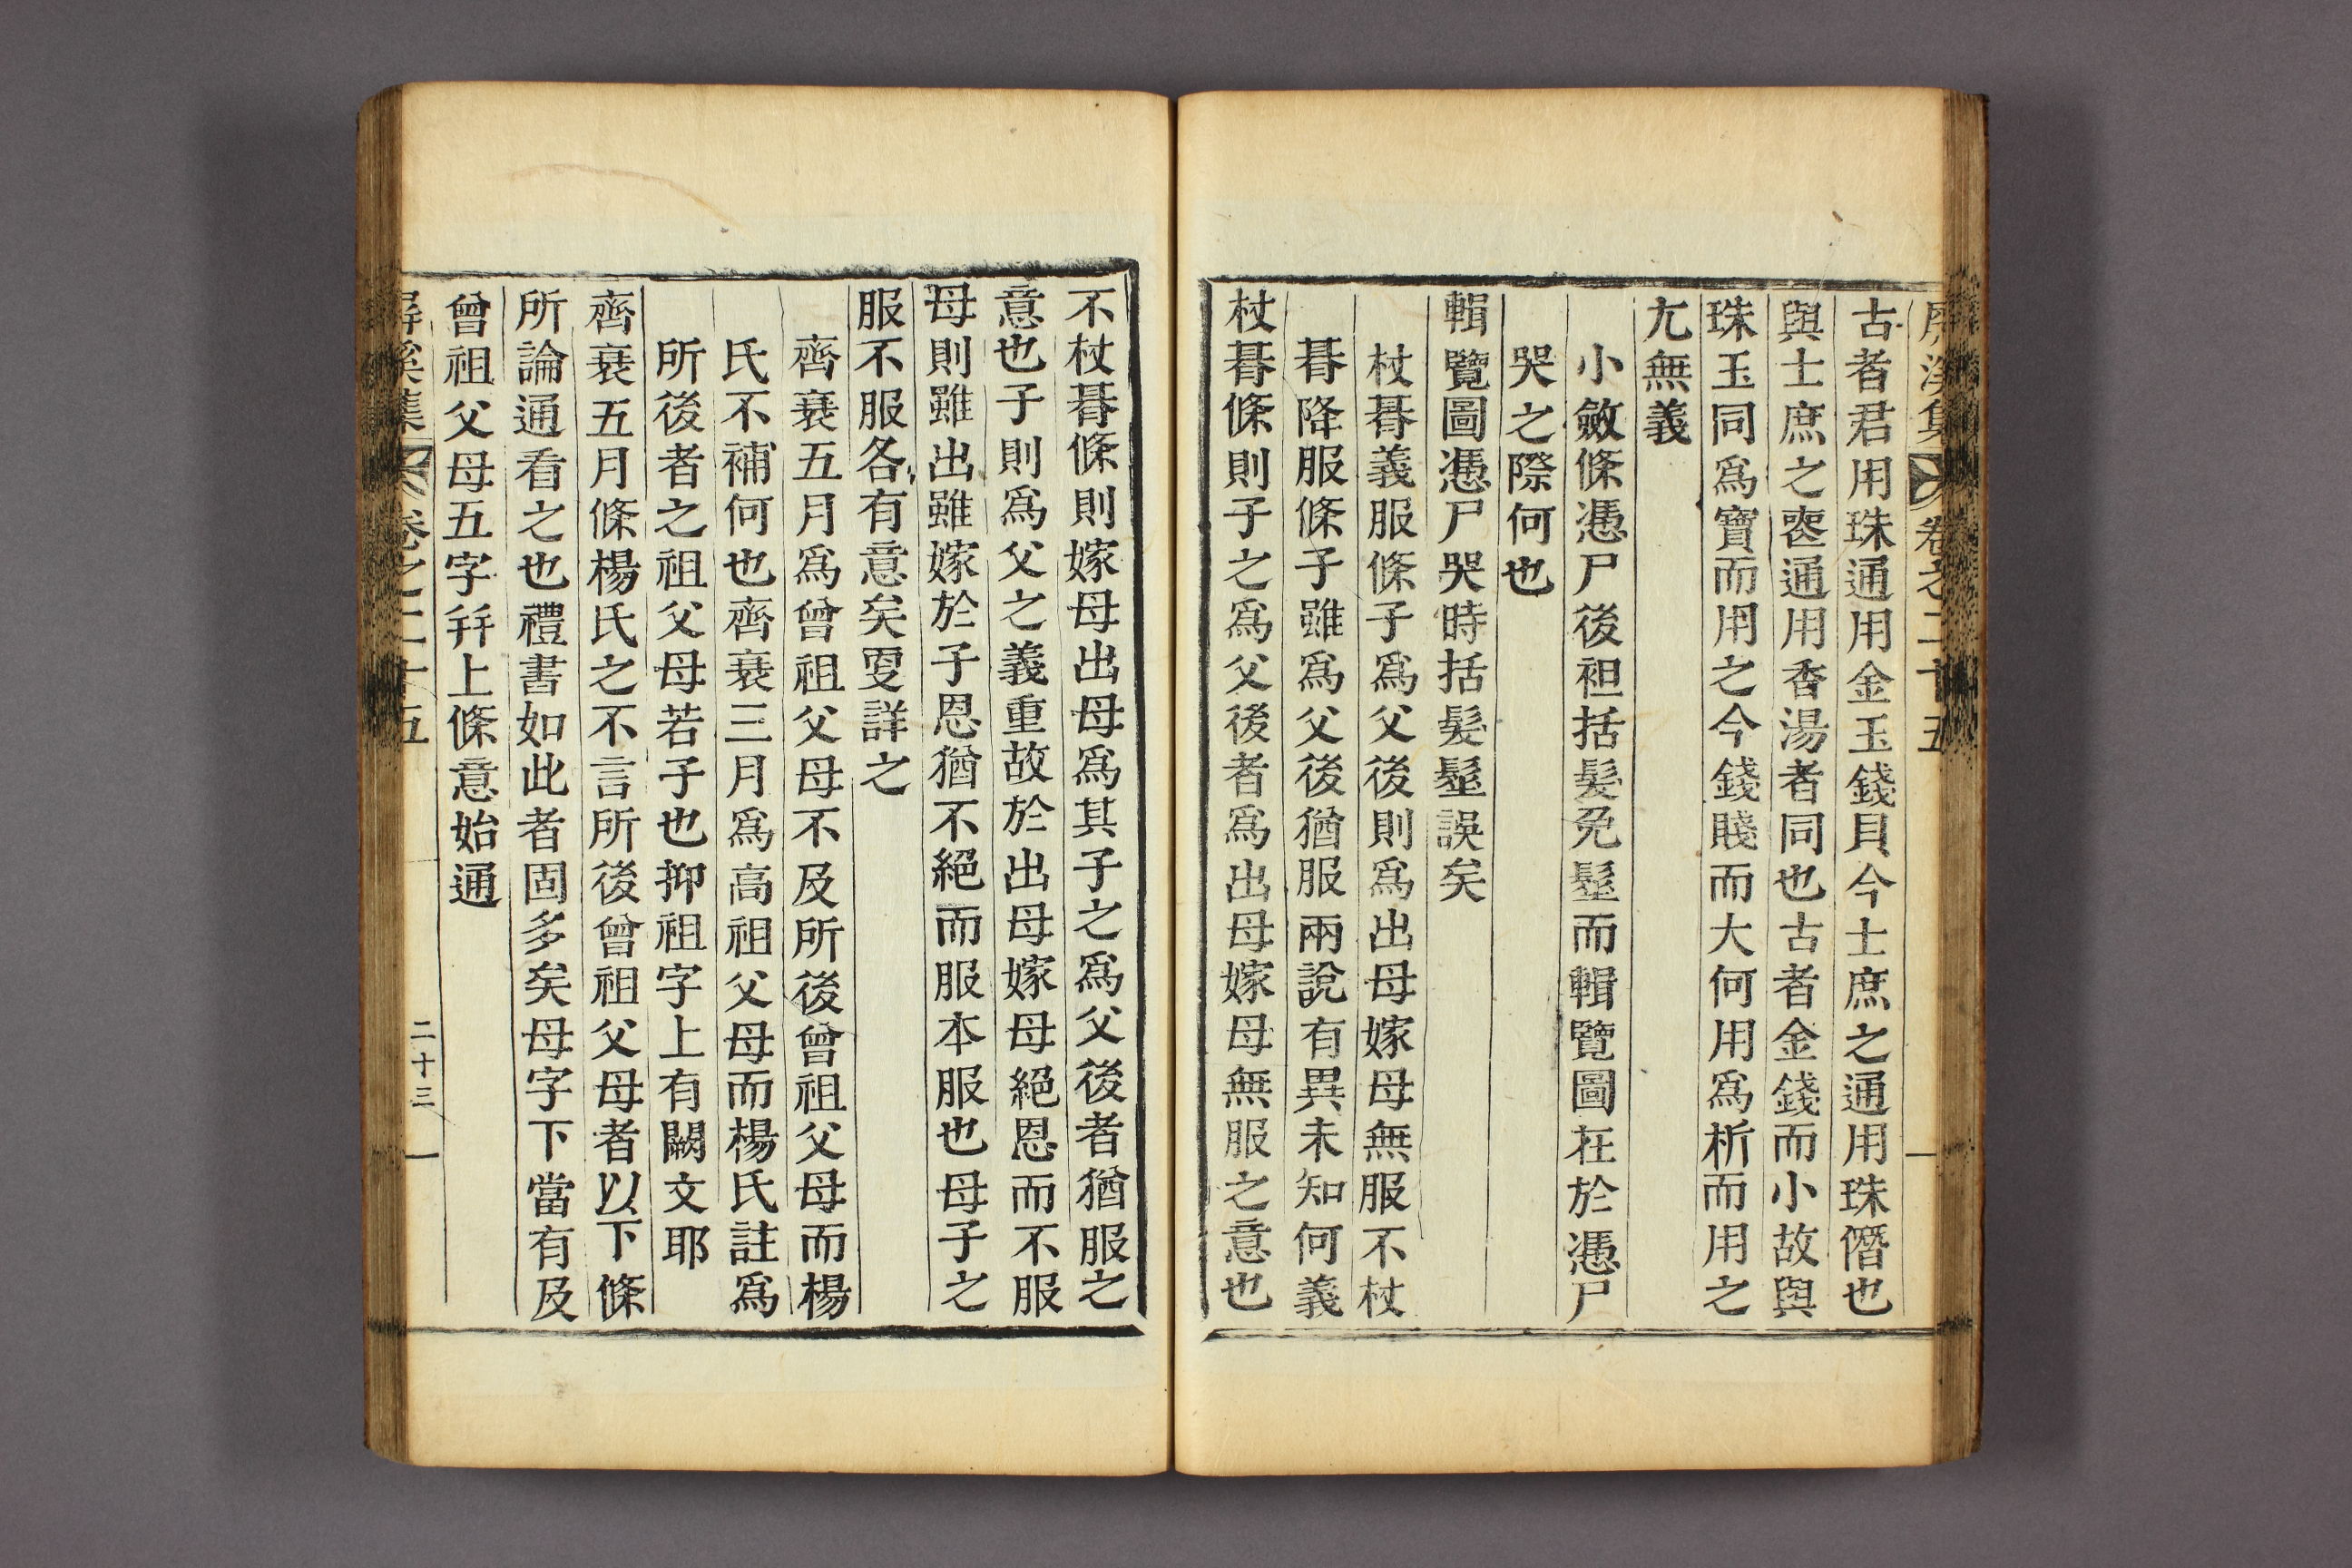 屛溪集 卷之二十五
古者君用珠通用金玉錢貝今士庶之通用珠僭也
與士庶之喪通用香湯者同也古者金錢而小故與
珠玉同爲寶而用之今錢賤而大何用爲析而用之
尢無義
小斂條憑尸後袒括髮免髽而輯覽圖在於憑尸
哭之際何也
輯覽圖憑尸哭時括髮髽誤矣
杖朞義服條子爲父後則爲出母嫁母無服不杖
朞降服條子雖爲父後猶服兩說有異未知何義
杖朞條則子之爲父後者爲出母嫁母無服之意也
不杖朞條則嫁母出母爲其子之爲父後者猶服之
意也子則爲父之義重故於出母嫁母絕恩而不服
母則雖出雖嫁於子恩猶不絕而服本服也母子之
服不服各有意矣更詳之
齊衰五月爲曾祖父母不及所後曾祖父母而楊
氏不補何也齊衰三月爲高祖父母而楊氏註爲
所後者之祖父母若子也抑祖字上有闕文耶
齊衰五月條楊氏之不言所後曾祖父母者以下條
所論通看之也禮書如此者固多矣母字下當有及
曾祖父母五字幷上條意始通
屛溪集 卷之二十五 二十三